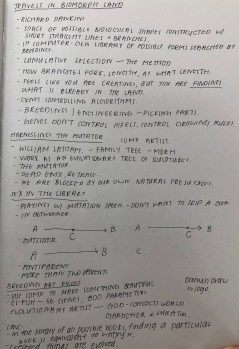 TRAVELS IN BIOMORPH LAND
- RICHARD DAWKINS
- SPACE OF POSSIBLE BIOLOGICAL SHAPES CONSTRUCTED W/
SHORT STRAIGHT LINES + BRANCHES.
- IN COMPUTER - OWN LIBRARY OF POSSIBLE FORMS SEARCHED BY
BREEDING.
- CUMULATIVE SELECTION - THE METHOD
- HOW BRANCHES FORK, LENGTH, AT WHAT LENGTH.
- FEELS LIKE YOU ARE CREATING, BUT YOU ARE FINDING
WHAT IS ALREADY IN THE LAND.
- GENES CONTROLLING ALGORITHMS.
- BREEDING | ENGINEERING - PICKING PART).
- GENES DON'T CONTROL PIXELS, CONTROL GROWING RULES
HARNESSING THE MUTATOR
ARTIST
- WILLIAM LATHAM, - FAMILY TREE - MORPH
- WORK AS AN EVOLUTIONARY TREE OF SCULPTURES.
- THE MUTATOR
- DEAD ENDS,
- WE ARE BLOCKED BY OUR OWN NATURAL PREJUDICES.
SEX IN THE LIBRARY
- PLAYING W/ MUTATION SPEED - DON'T WANT TO SKIP A
- IN BETWEENER
A B A B
C C
OUTSIDER
A B C
- ANTIPARENT
- MORE THAN TWO PARENTS
BREEDING ART PIECES
- USE TO MAKE SOMETHING BEAUTIFUL
- 56 GENES, 800 PARAMETERS
- EVOLUTIONARY ARTIST - GOD - CONCOCTS WORLD
GARDENER + CURATOR.
DARWIN DRAW
- IN THE LIBRARY OF ALL POSSIBLE BOOKS, FINDING A PARTICULAR
BOOK IS EQUIVALENT TO WRITING IT.
- CREATED THINGS ARE EVOLVED.